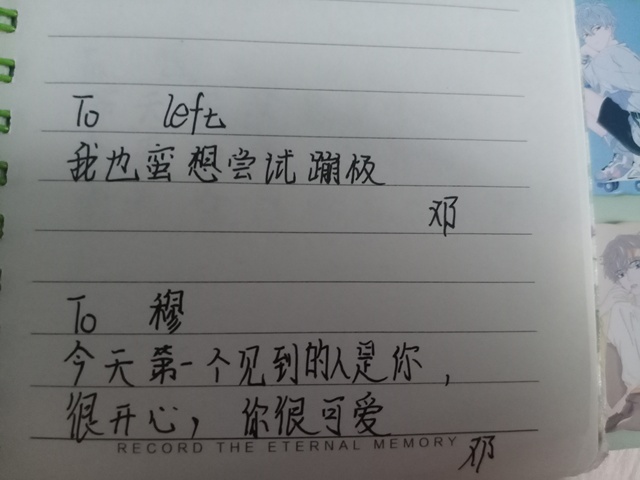 To left
我也蛮想尝试蹦极
邓
To 穆
今天第一个见到的人是你，
很开心，你很可爱
RECORD THE ETERNAL MEMORY
邓